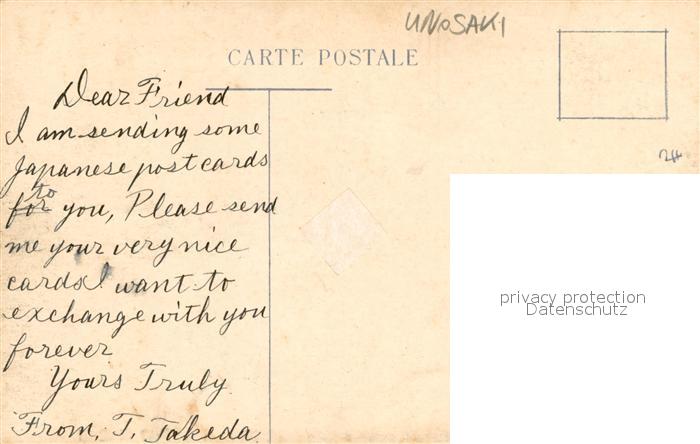 UNOSAKI
CARTE POSTALE
Dear Friend
I am sending some
Japanese postcards
to
for you, Please send
me your very nice
cards I want to
exchange with you
forever
Yours Truly
From, T. Takeda
24
privacy protection
Datenschutz